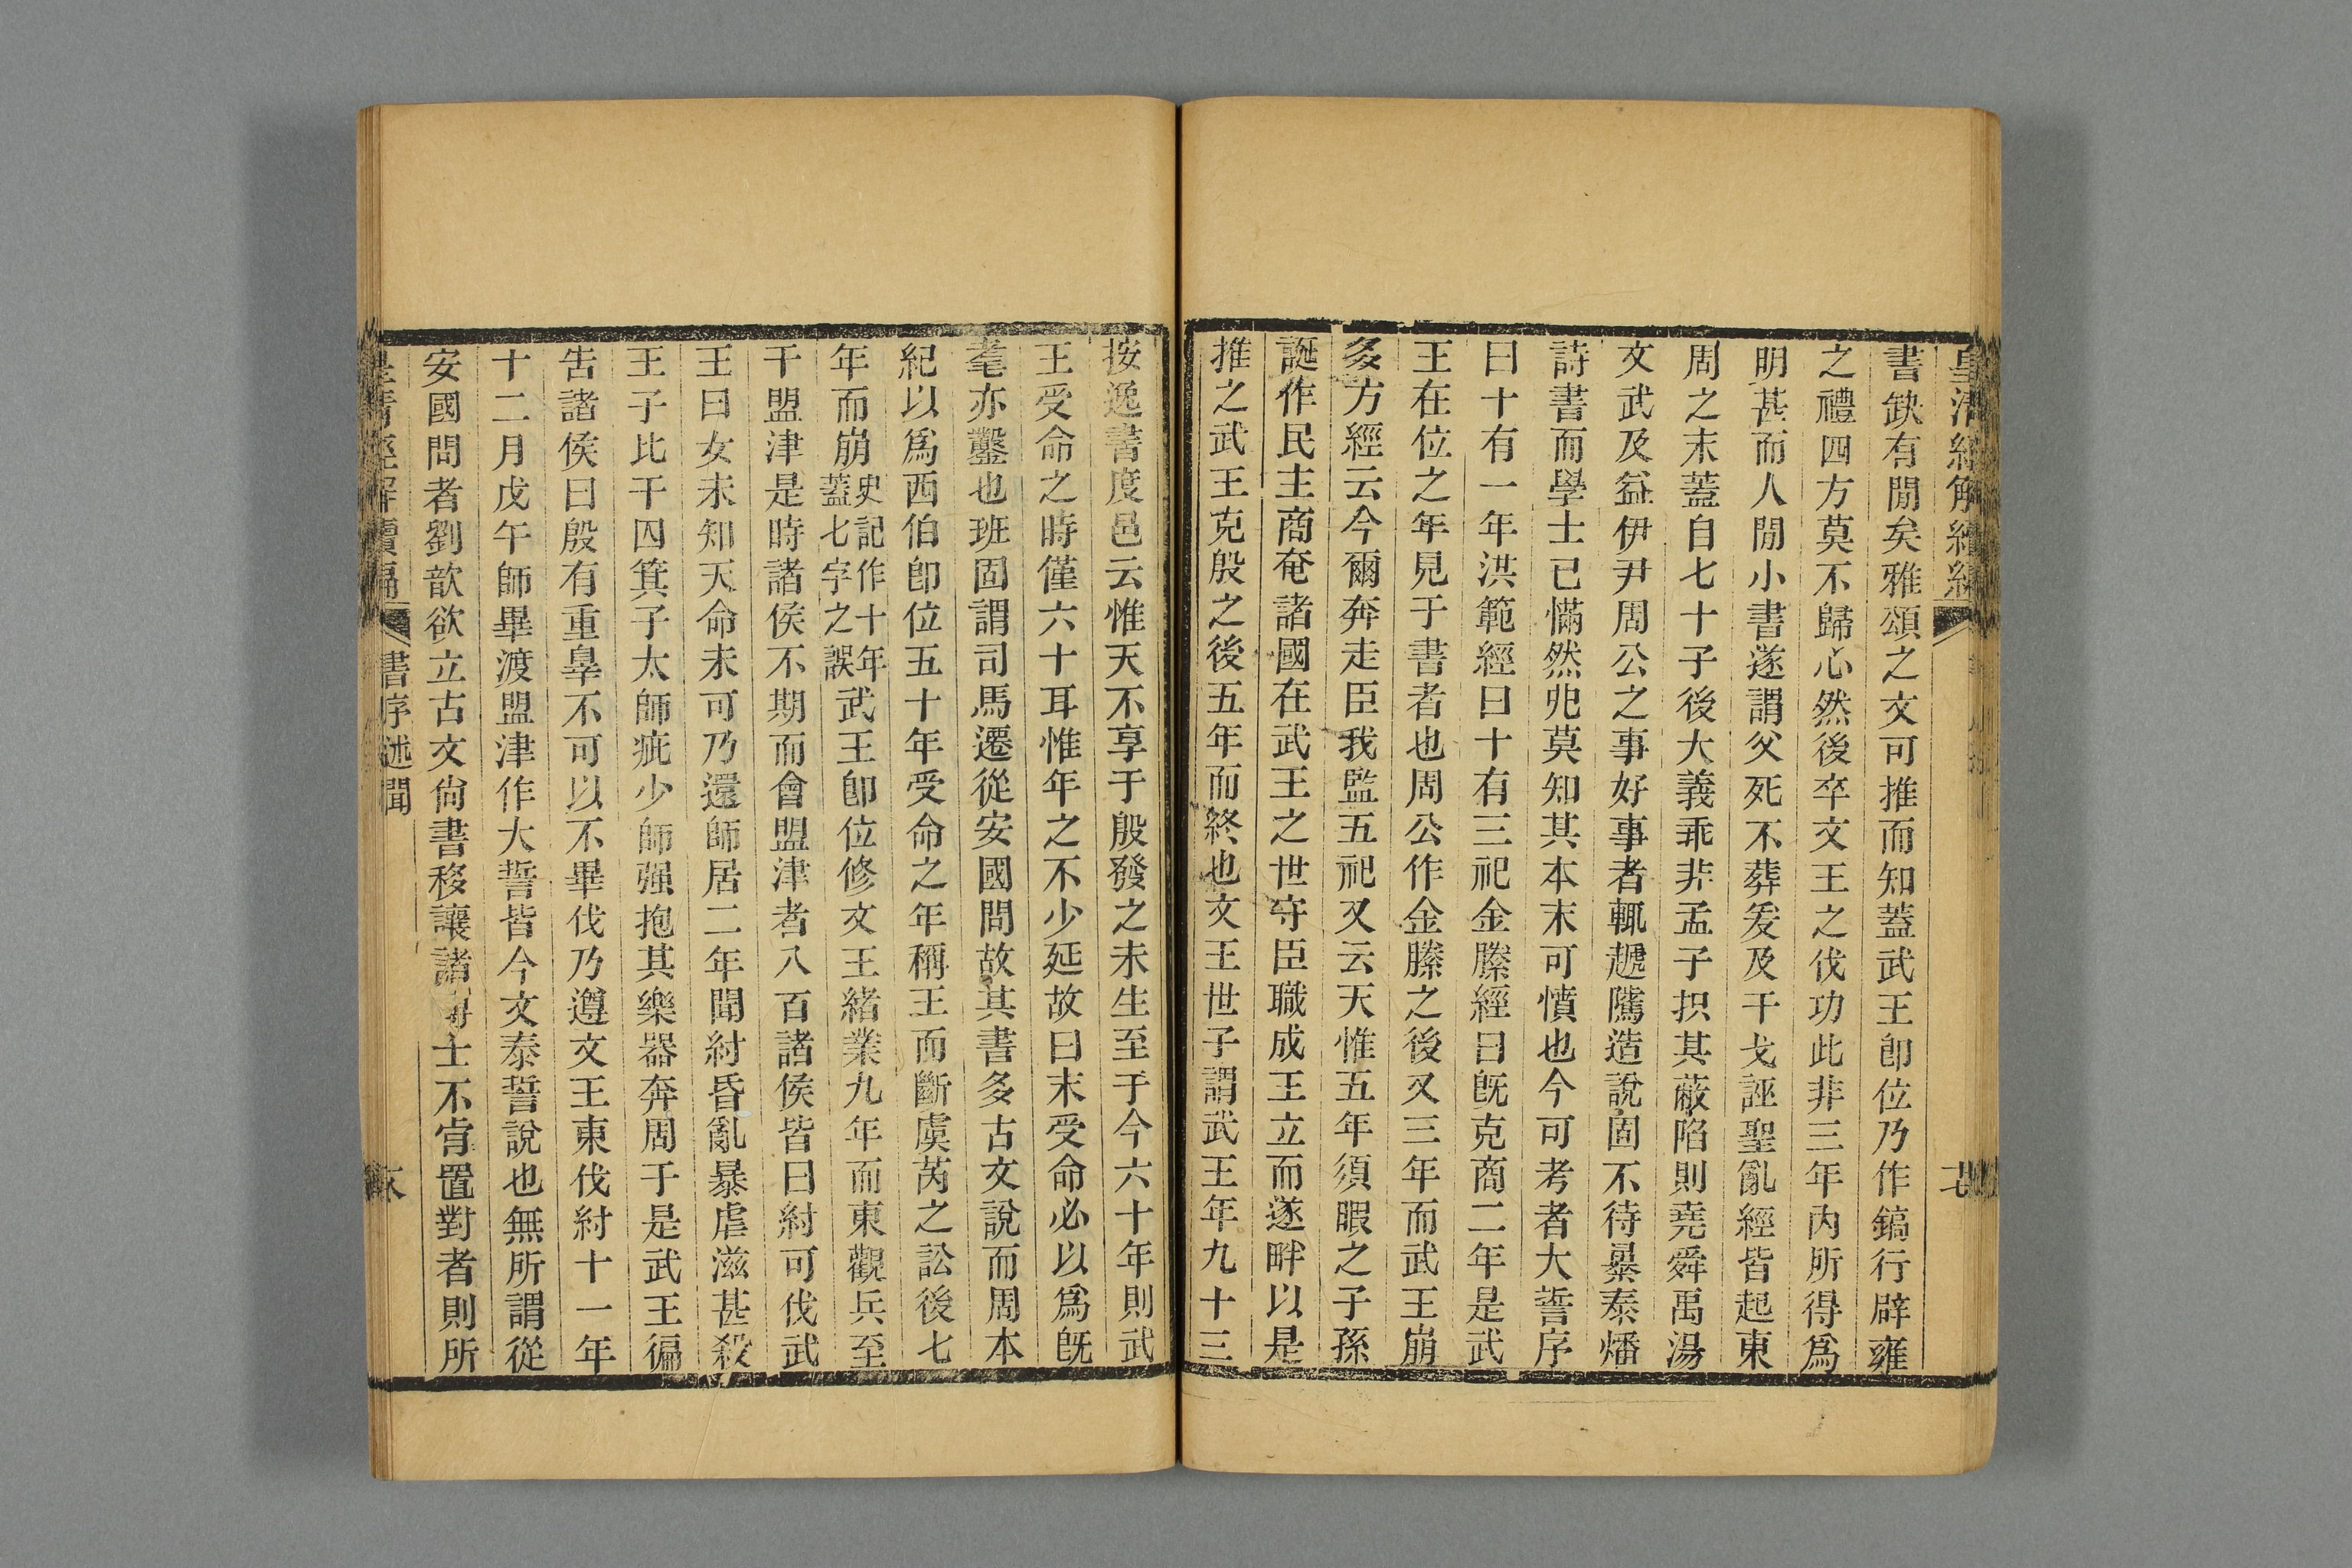 書缺有閒矣雅頌之文可推而知蓋武王卽位乃作鎬行辟雍
之禮四方莫不歸心然後卒文王之伐功此非三年內所得爲
明甚而人閒小書遂謂父死不葬爰及干戈誣聖亂經皆起東
周之末蓋自七十子後大義乖非孟子抧其蔽陷則堯舜禹湯
文武及益伊尹周公之事好事者輒趣隲造說固不待暴秦燔
詩書而學士已懣然㒵莫知其本末可憤也今可考者大誓序
曰十有一年洪範經曰十有三祀金縢經曰旣克商二年是武
王在位之年見于書者也周公作金縢之後又三年而武王崩
多方經云今爾奔走臣我監五祀又云天惟五年須暇之子孫
誕作民主商奄諸國在武王之世守臣職成王立而遂畔以是
推之武王克殷之後五年而終也文王世子謂武王年九十三
按逸書度邑云惟天不享于殷發之未生至于今六十年則武
王受命之時僅六十耳惟年之不少延故曰末受命必以爲旣
耄亦鑿也班固謂司馬遷從安國問故其書多古文說而周本
紀以爲西伯卽位五十年受命之年稱王而斷虞芮之訟後七
年而崩史記作十年蓋七字之誤武王卽位修文王緒業九年而東觀兵至
于盟津是時諸侯不期而會盟津者八百諸侯皆曰紂可伐武
王曰女未知天命未可乃還師居二年聞紂昏亂暴虐滋甚殺
王子比干囚箕子太師疵少師强抱其樂器奔周于是武王徧
吿諸侯曰殷有重辠不可以不畢伐乃遵文王東伐紂十一年
十二月戊午師畢渡盟津作大誓皆今文泰誓說也無所謂從
安國問者劉歆欲立古文尙書移讓諸博士不肯置對者則所
皇清經解續編 書序述聞